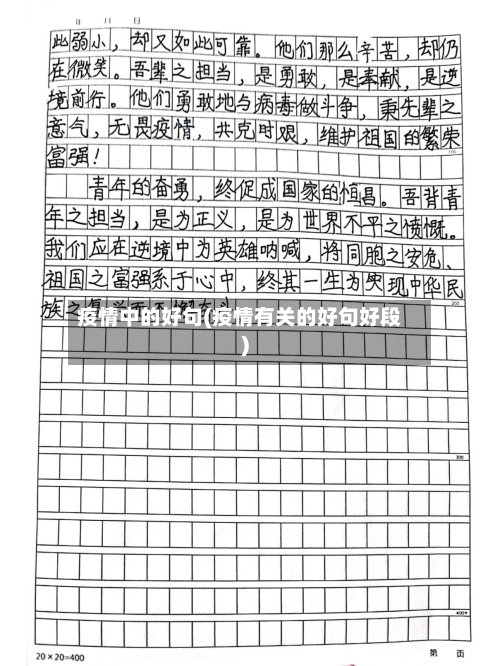 年 月 日
此弱小，却又如此可靠。他们那么辛苦，却仍
在微笑。吾辈之担当，是勇敢，是奉献，是逆
境前行。他们勇敢地与病毒做斗争，秉先辈之
意气，无畏疫情，共克时艰，维护祖国的繁荣
富强！
100
青年的奋勇，终促成国家的恒昌。吾背青
年之担当，是为正义，是为世界不平之愤慨。
我们应在逆境中为英雄呐喊，将同胞之安危、
祖国之富强系于心中，终其一生为实现中华民
200
族之复兴而不懈奋斗
疫情中的好句(疫情有关的好句好段
)
300
400
20×20=400
第 页